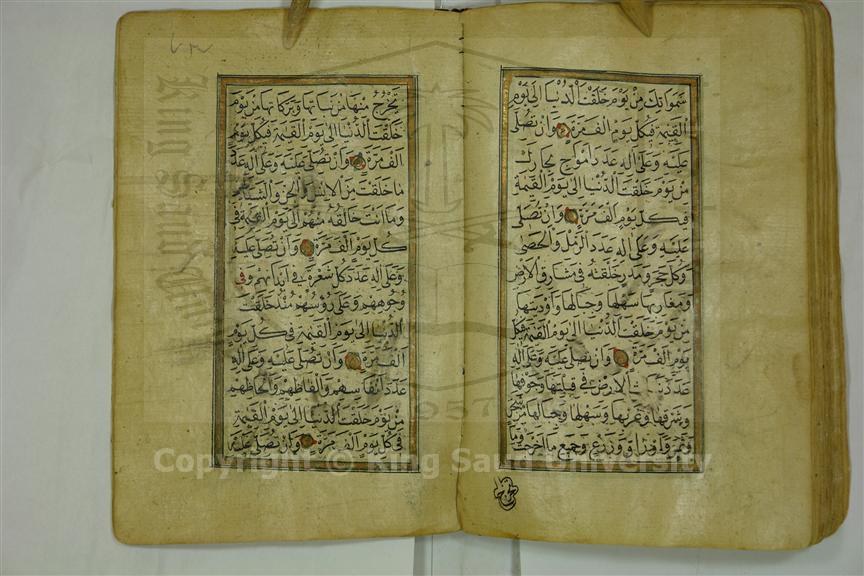 سمواتك من يوم خلقت الدنيا الى يوم
القيمة فى كل يوم الف مرة وان تصلى
عليه وعلى اله عدد امواج بحارك
من يوم خلقت الدنيا الى يوم القيمة
فى كل يوم الف مرة وان تصلى
عليه وعلى اله عدد الرمل والحصى
وكل حجر ومدر خلقته فى مشارق الارض
ومغاربها سهلها وجبالها واوديتها
من يوم خلقت الدنيا الى يوم القيمة فى كل
يوم الف مرة وان تصلى عليه وعلى اله
عدد نبات الارض فى قبلتها وجوفها
وشرقها وغربها وسهلها وجبالها من شجر
وثمر واوراق وزرع وجميع ما اخرجت وما
يخرج
يخرج منها من نباتها وبركاتها من يوم
خلقت الدنيا الى يوم القيمة فى كل يوم
الف مرة وان تصلى عليه وعلى اله عدد
ما خلقت من الانس والجن والشياطين
وما انت خالقه منهم الى يوم القيمة فى
كل يوم الف مرة وان تصلى عليه
وعلى اله عدد كل شعرة فى ابدانهم وفى
وجوههم وعلى رؤسهم منذ خلقت
الدنيا الى يوم القيمة فى كل يوم
الف مرة وان تصلى عليه وعلى اله
عدد انفاسهم والفاظهم والحاظهم
من يوم خلقت الدنيا الى يوم القيمة
فى كل يوم الف مرة وان تصلى عليه
Copyright © King Saud University
King Saud University
1957